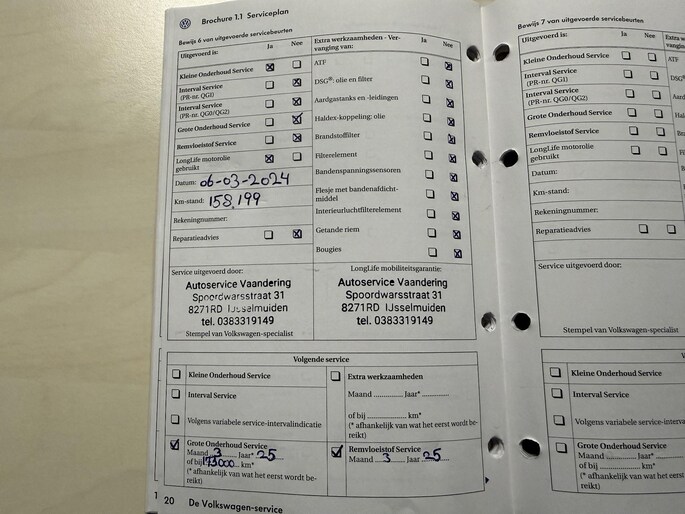 Brochure 1.1 Serviceplan
Bewijs 6 van uitgevoerde servicebeurten
Uitgevoerd is: Ja Nee
Kleine Onderhoud Service
Interval Service
(PR-nr. QG1)
Interval Service
(PR-nr. QG0/QG2)
Grote Onderhoud Service
Remvloeistof Service
LongLife motorolie
gebruikt
Datum: 06-03-2024
Km-stand: 158.199
Rekeningnummer:
Reparatieadvies
Extra werkzaamheden - Ver-
vanging van: Ja Nee
ATF
DSG®: olie en filter
Aardgastanks en -leidingen
Haldex-koppeling: olie
Brandstoffilter
Filterelement
Bandenspanningssensoren
Flesje met bandenafdicht-
middel
Interieurluchtfilterelement
Getande riem
Bougies
Service uitgevoerd door:
Autoservice Vaandering
Spoordwarsstraat 31
8271RD IJsselmuiden
tel. 0383319149
Stempel van Volkswagen-specialist
LongLife mobiliteitsgarantie:
Autoservice Vaandering
Spoordwarsstraat 31
8271RD IJsselmuiden
tel. 0383319149
Volgende service
Kleine Onderhoud Service
Interval Service
Volgens variabele service-intervalindicatie
Grote Onderhoud Service
Maand 3 Jaar* 25
of bij 173000 km*
(* afhankelijk van wat het eerst wordt be-
reikt)
Extra werkzaamheden
Maand Jaar*
of bij km*
(* afhankelijk van wat het eerst wordt be-
reikt)
Remvloeistof Service
Maand 3 Jaar 25
20 De Volkswagen-service
Bewijs 7 van uitgevoerde servicebeurten
Uitgevoerd is: Ja Nee
Kleine Onderhoud Service
Interval Service
(PR-nr. QG1)
Interval Service
(PR-nr. QG0/QG2)
Grote Onderhoud Service
Remvloeistof Service
LongLife motorolie
gebruikt
Datum:
Km-stand:
Rekeningnummer:
Reparatieadvies
Extra w
vanging
ATF
DSG®
Aard
Hald
Bran
Service uitgevoerd door:
Stempel van Volkswagen-specialist
Kleine Onderhoud Service
Interval Service
Volgens variabele service-interva
Grote Onderhoud Service
Maand Jaar*
of bij km*
(* afhankelijk van wat het eerst
reikt)